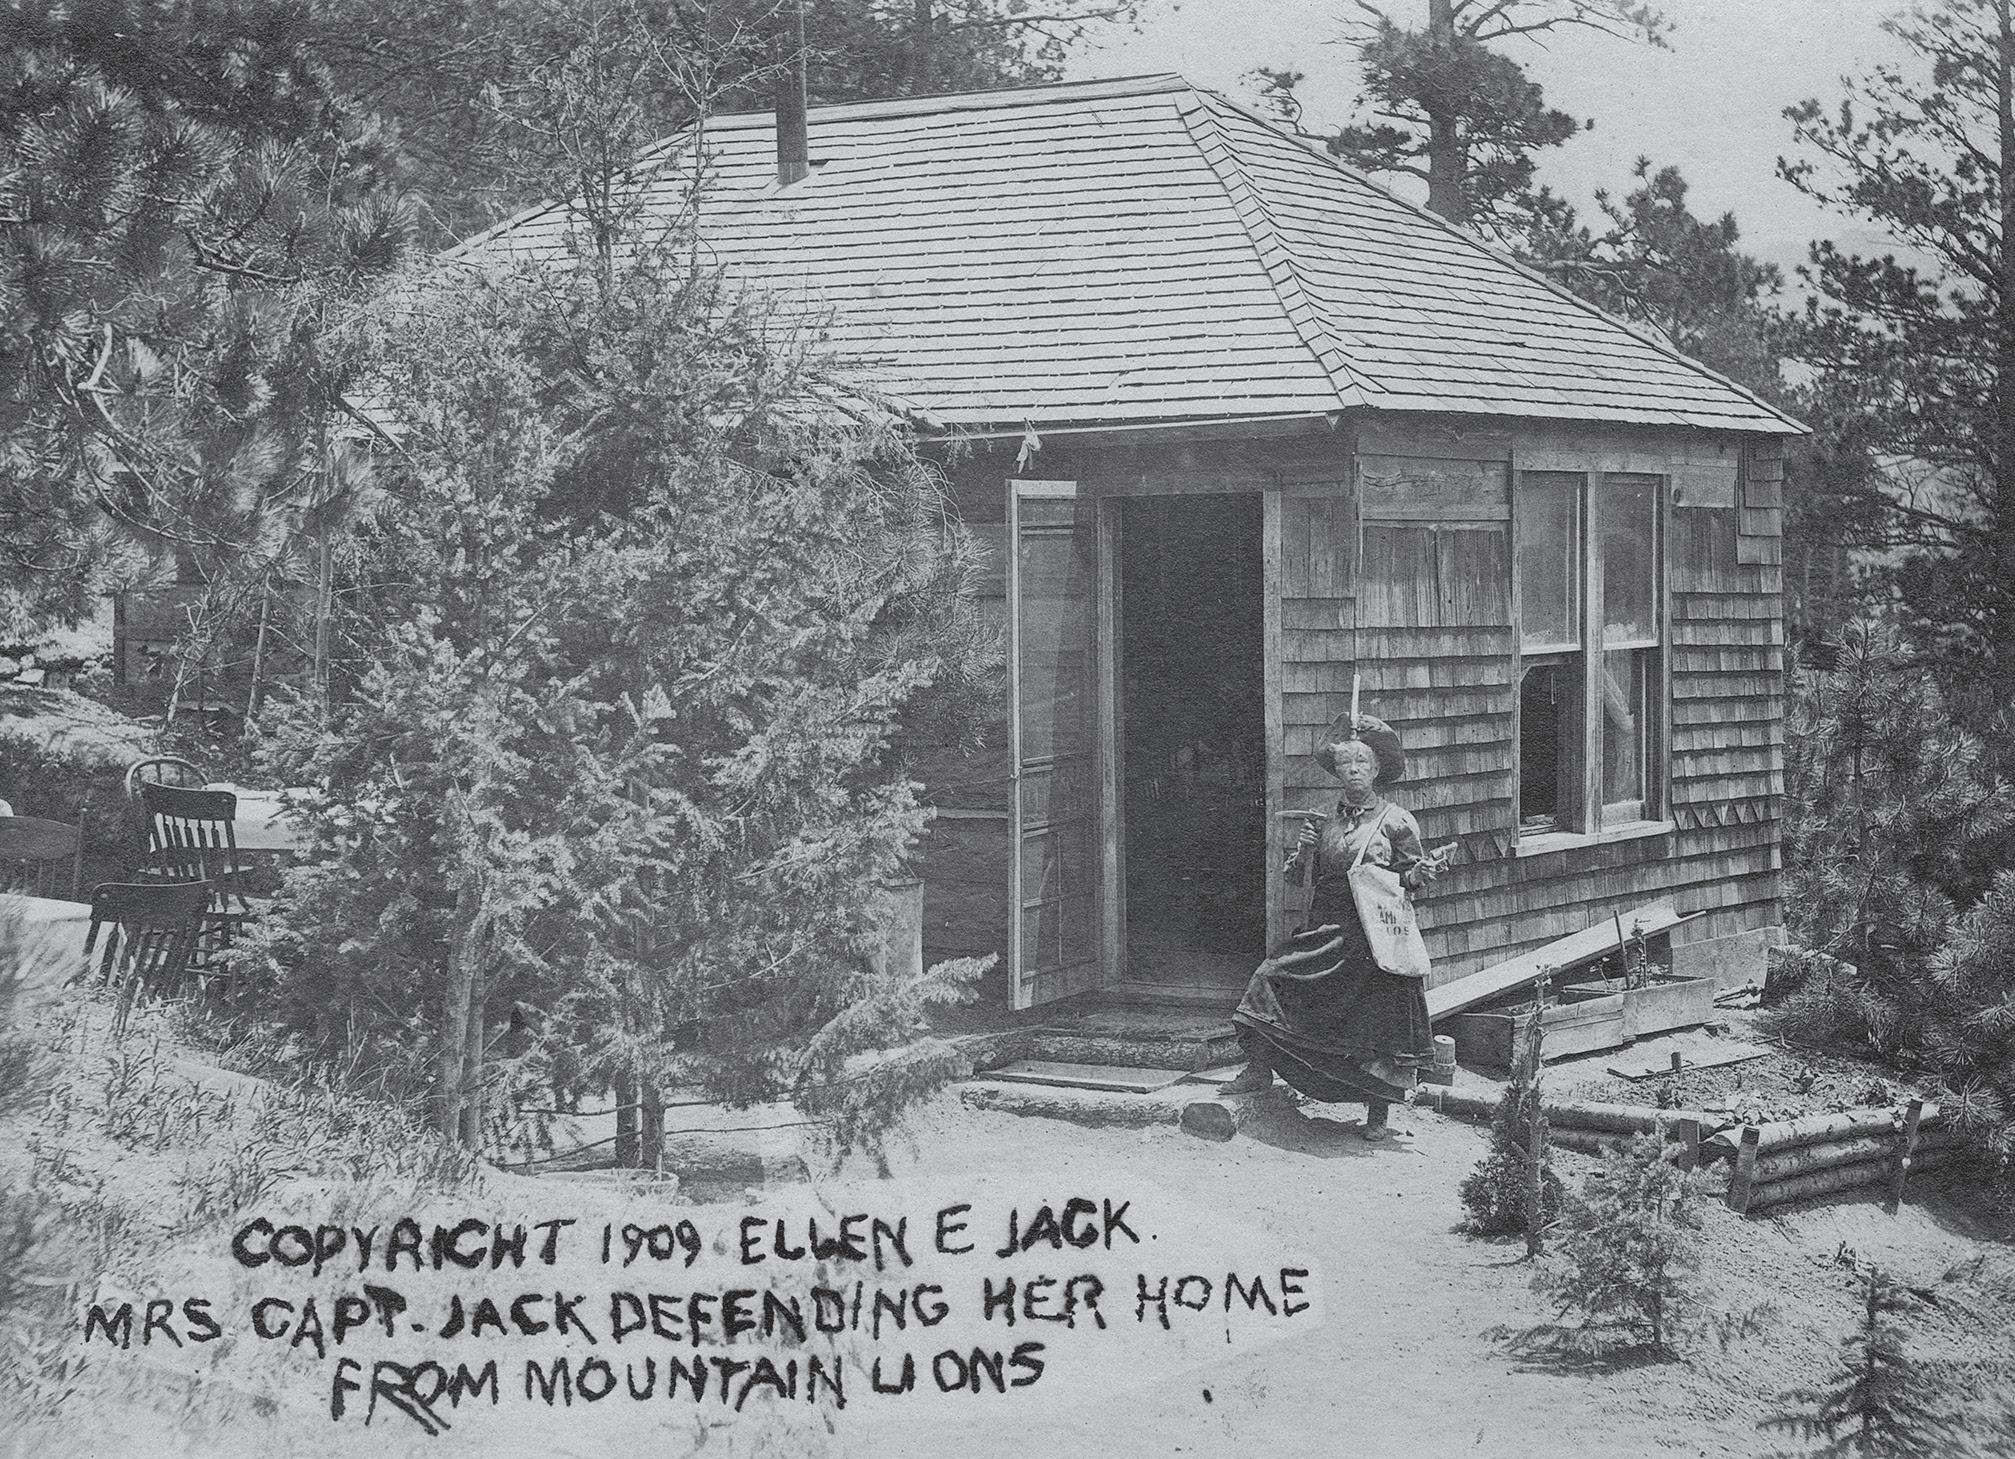 COPYRIGHT 1909 ELLEN E JACK.
MRS CAPT. JACK DEFENDING HER HOME
FROM MOUNTAIN LIONS